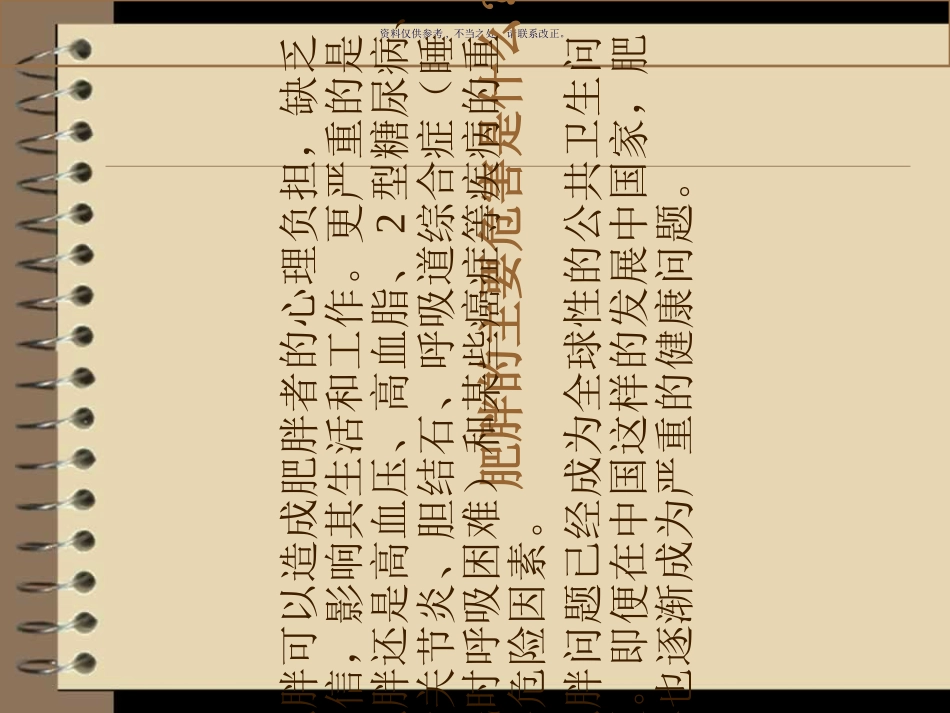 资料仅供参考，不当之处，请联系改正。
肥胖的主要危害是什么
胖可以造成肥胖者的心理负担，缺乏
信，影响其生活和工作。更严重的是
胖还是高血压、高血脂、2型糖尿病、
关节炎、胆结石、呼吸道综合症（睡
时呼吸困难）和某些癌症等疾病的重
危险因素。
胖问题已经成为全球性的公共卫生问
。即便在中国这样的发展中国家，肥
也逐渐成为严重的健康问题。